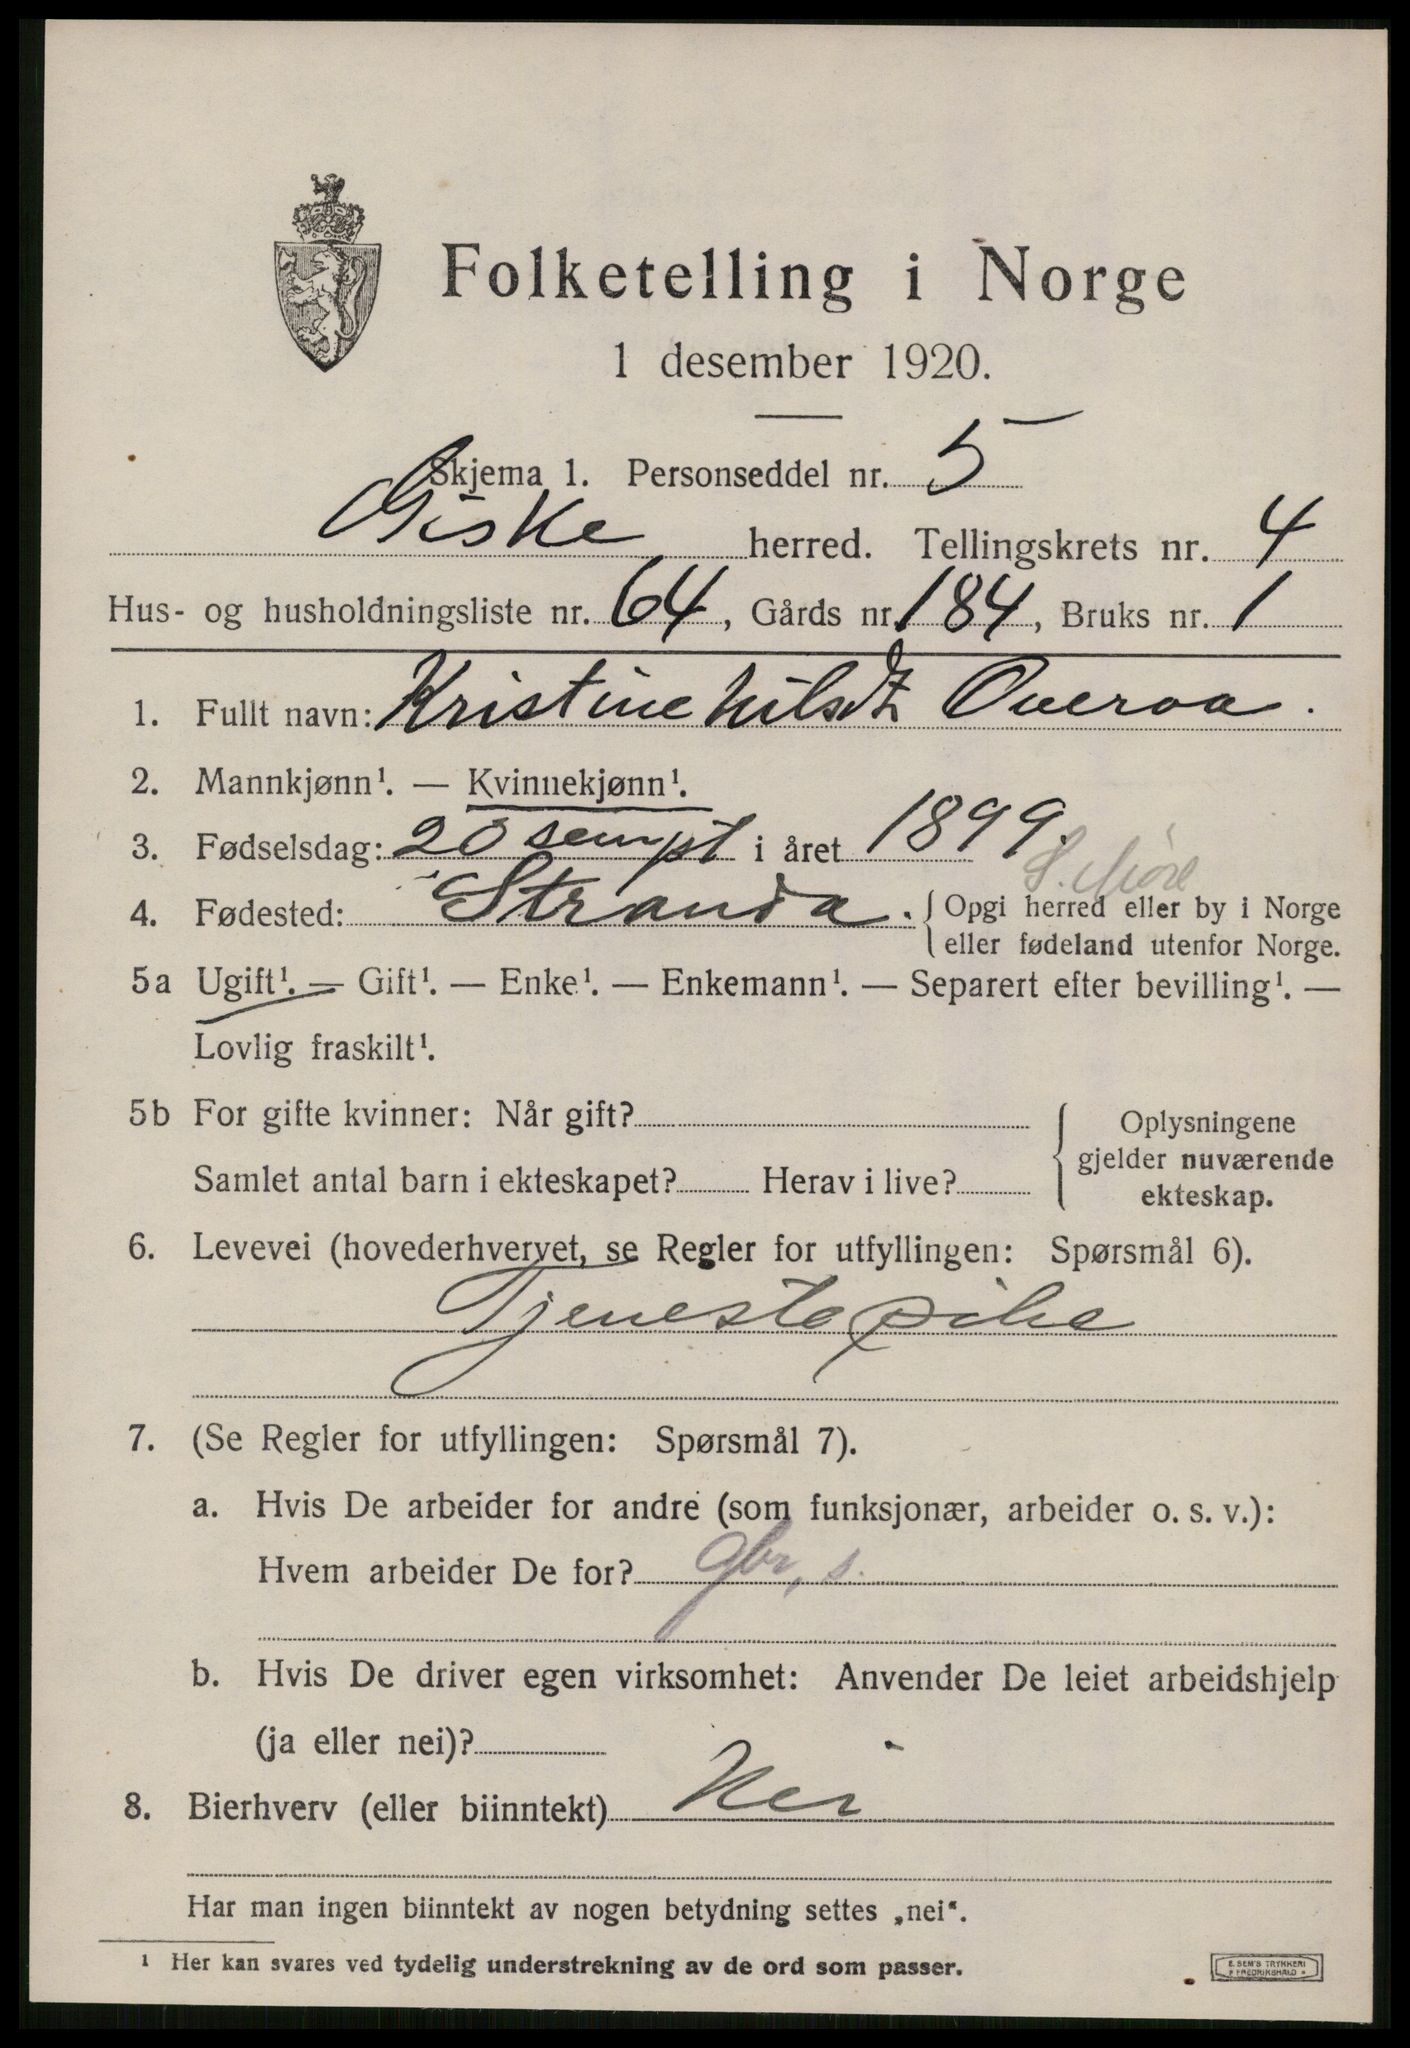 Folketelling i Norge
1 desember 1920.
Skjema 1. Personseddel nr. 5
Giske herred. Tellingskrets nr. 4
Hus- og husholdningsliste nr. 64, Gårds nr. 184, Bruks nr. 1
1. Fullt navn: Kristine Overoa.
2. Mannkjønn¹. — Kvinnekjønn¹.
3. Fødselsdag: 20 sempt i året 1899.
S. Møre
4. Fødested: Stranda. { Opgi herred eller by i Norge
eller fødeland utenfor Norge.
5a Ugift¹. — Gift¹. — Enke¹. — Enkemann¹. — Separert efter bevilling¹. —
Lovlig fraskilt¹.
5b For gifte kvinner: Når gift?
Samlet antal barn i ekteskapet? Herav i live?
Oplysningene
gjelder nuværende
ekteskap.
6. Levevei (hovederhvervet, se Regler for utfyllingen: Spørsmål 6).
Tjenestepike
7. (Se Regler for utfyllingen: Spørsmål 7).
a. Hvis De arbeider for andre (som funksjonær, arbeider o. s. v.):
Hvem arbeider De for? gbr, s.
b. Hvis De driver egen virksomhet: Anvender De leiet arbeidshjelp
(ja eller nei)?
8. Bierhverv (eller biinntekt) Nei
Har man ingen biinntekt av nogen betydning settes „nei“.
¹ Her kan svares ved tydelig understrekning av de ord som passer.
E. SEM'S TRYKKERI
FREDRIKSHALD